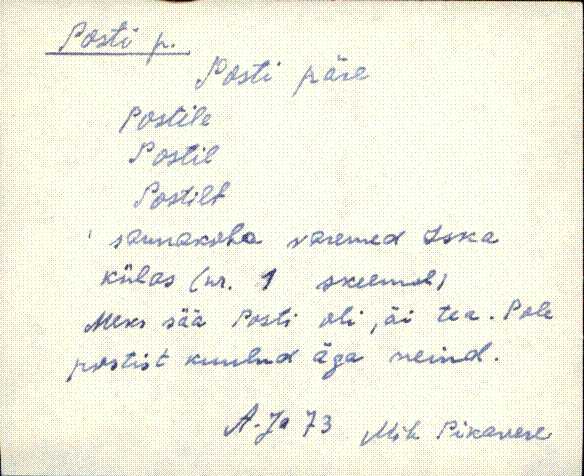 Posti p.
Posti päre
Postile
Postil
Postilt
saunakoha varemed Iska
külas (nr. 1 skeemil)
Meks sää Posti oli, äi tea. Pole
postist kuulnd äga neind.
A-Ja 73 Mih Pikavere